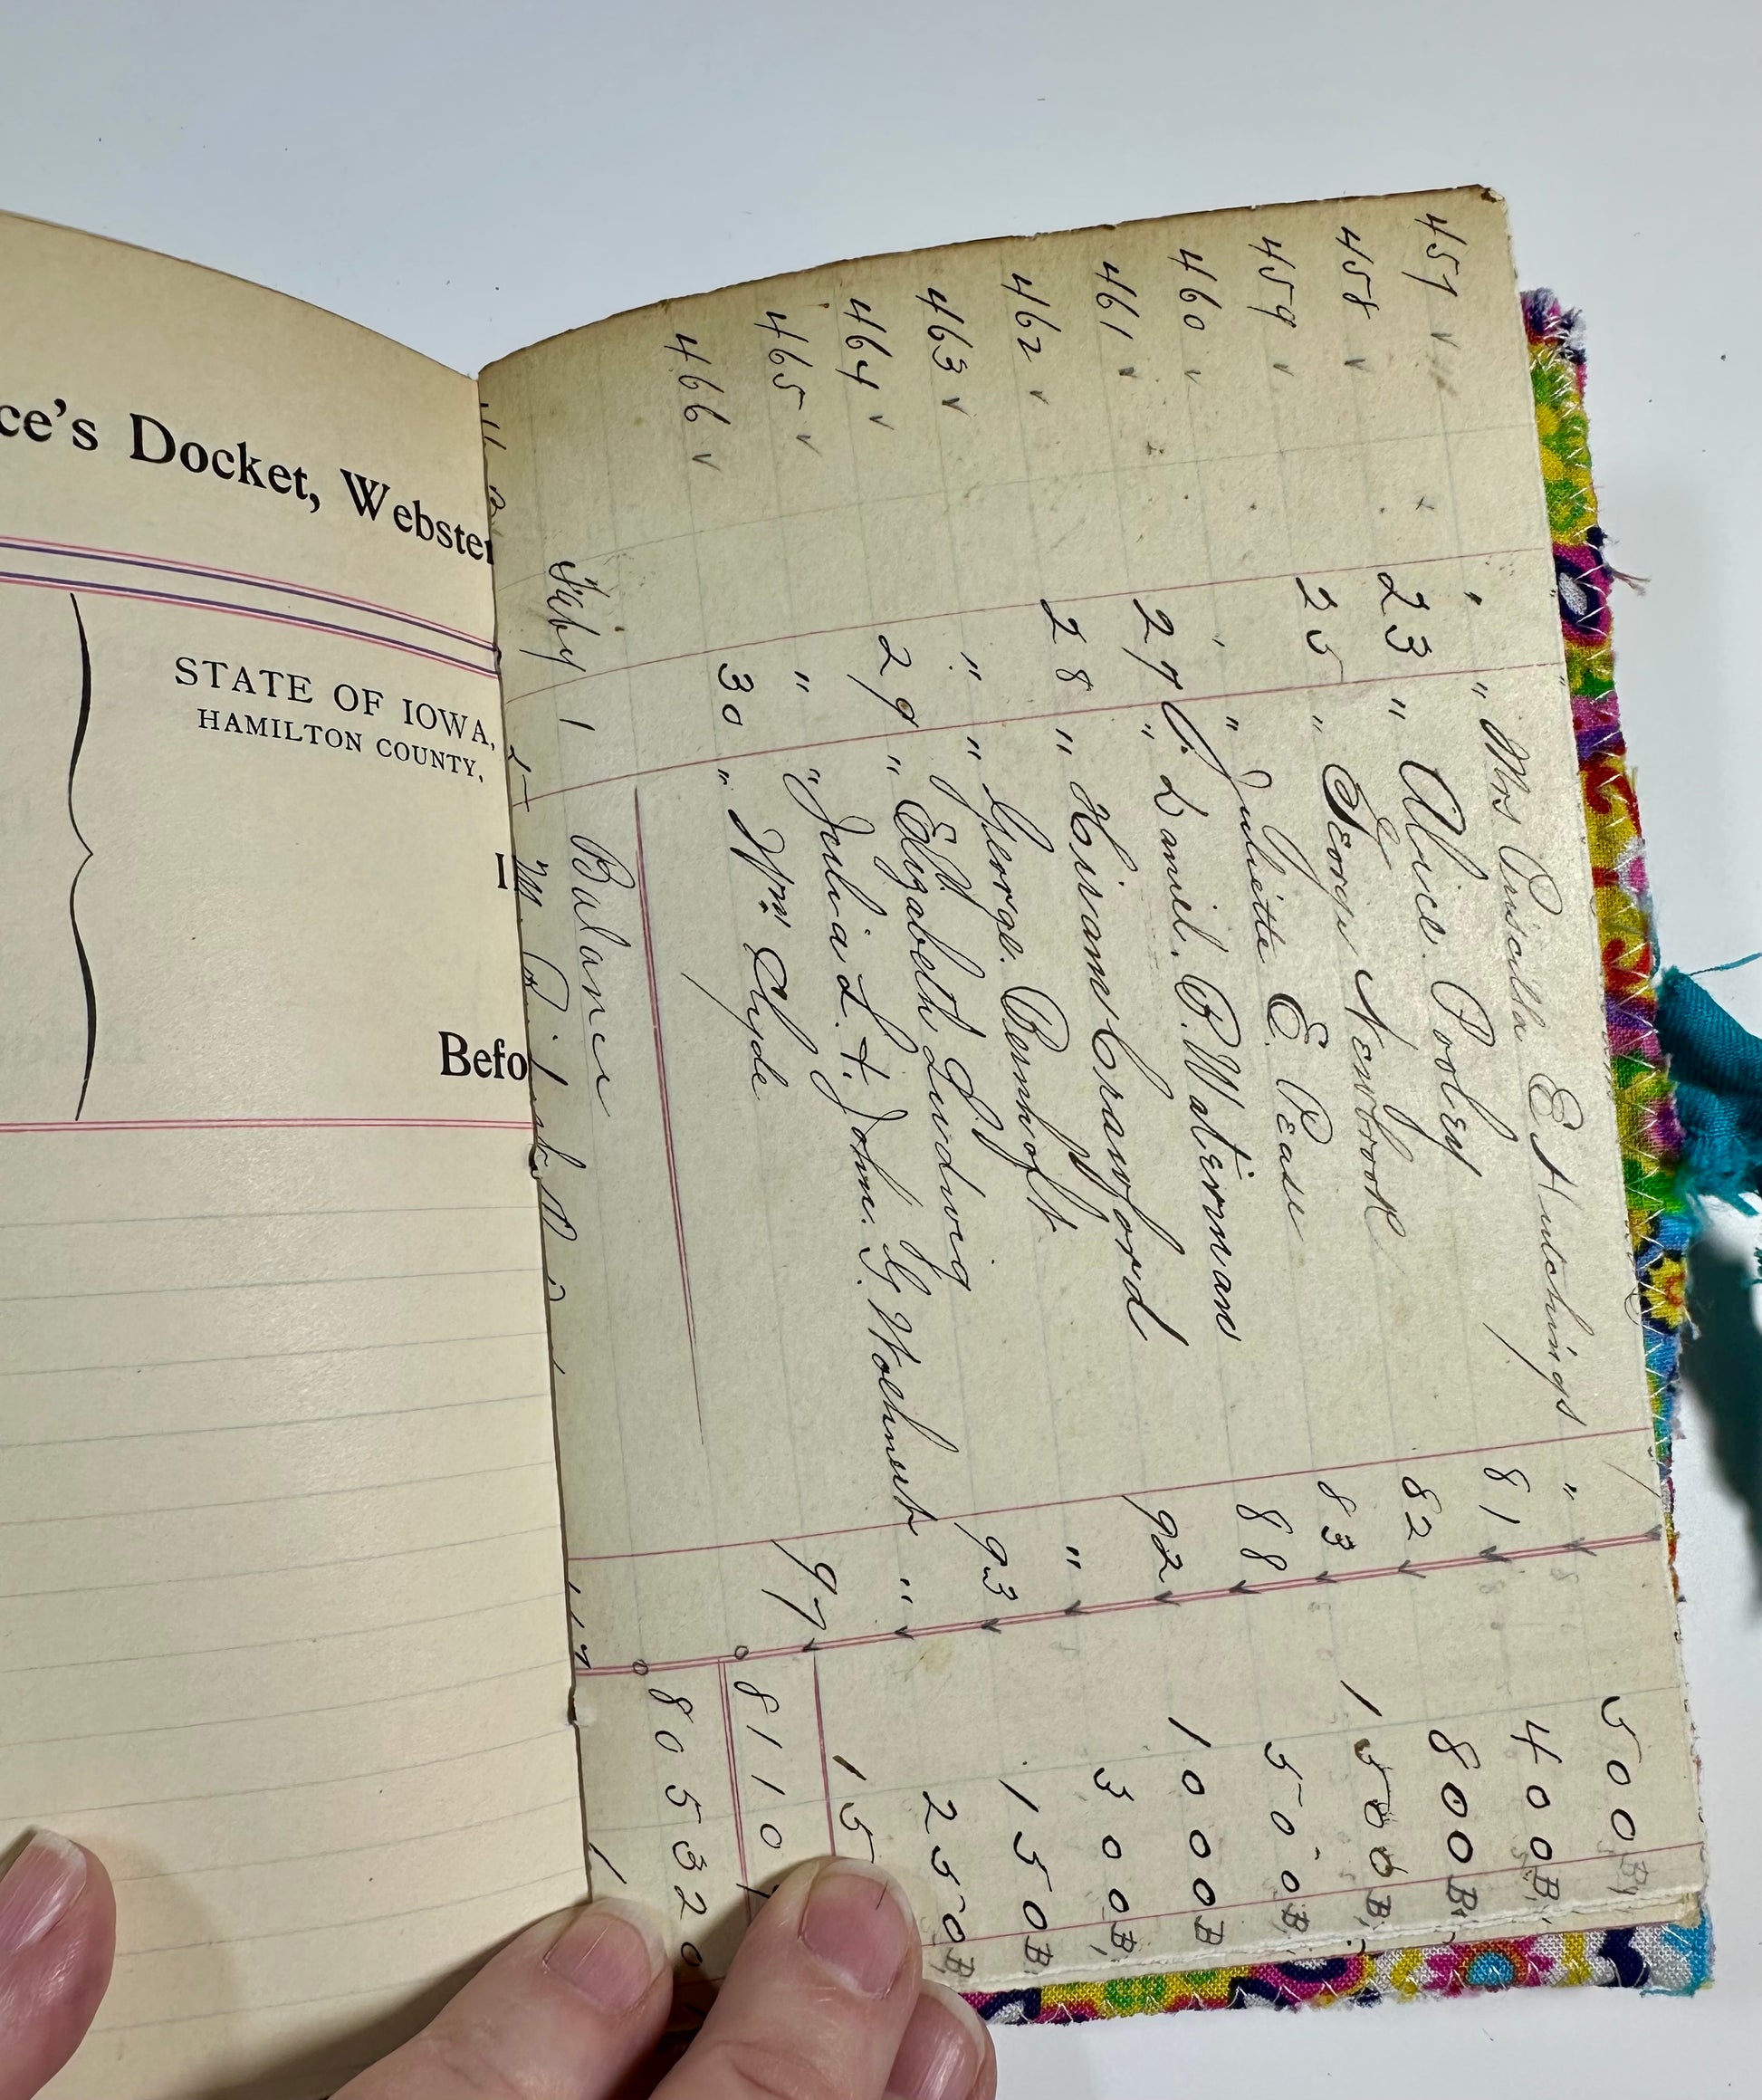 ce's Docket, Webster
STATE OF IOWA,
HAMILTON COUNTY,
Befo
457 " " Mrs Priscilla E Hutchings " 500 B
458 23 " Alice Pooley 81 400 B
459 25 " George Newbrook 82 800 B
460 " " Juliette E. Pease 83 1500 B
461 27 " Daniel. B. Waterman 88 500 B
462 28 " Hiram Crawford 92 1000 B
463 " " George. Bernhoft " 300 B
464 29 " Elizabeth Ludwig 93 150 B
465 " " Julia L. &. John. G. Wolhnut " 250 B
466 30 " Wm Clyde 97 15
8110
Feby 1 Balance 805320